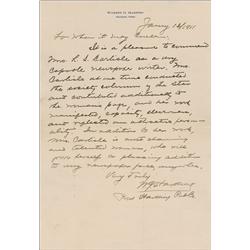 WARREN G. HARDING
MARION, OHIO
Jany 12/1911
To Whom it may Concern:
It is a pleasure to commend
Mrs L. S. Carlisle as a very
capable newspaper writer. Mrs
Carlisle at one time conducted
the society column of the Star
and contributed additional to
the womans page, and her work
manifested capacity, cleverness,
and reflected an attractive person-
ality. In addition to her work,
Mrs Carlisle is
and talented woman, who will
prove herself a pleasing addition
to any newspaper force anywhere.
Very Truly
WG Harding
Harding Pub Co